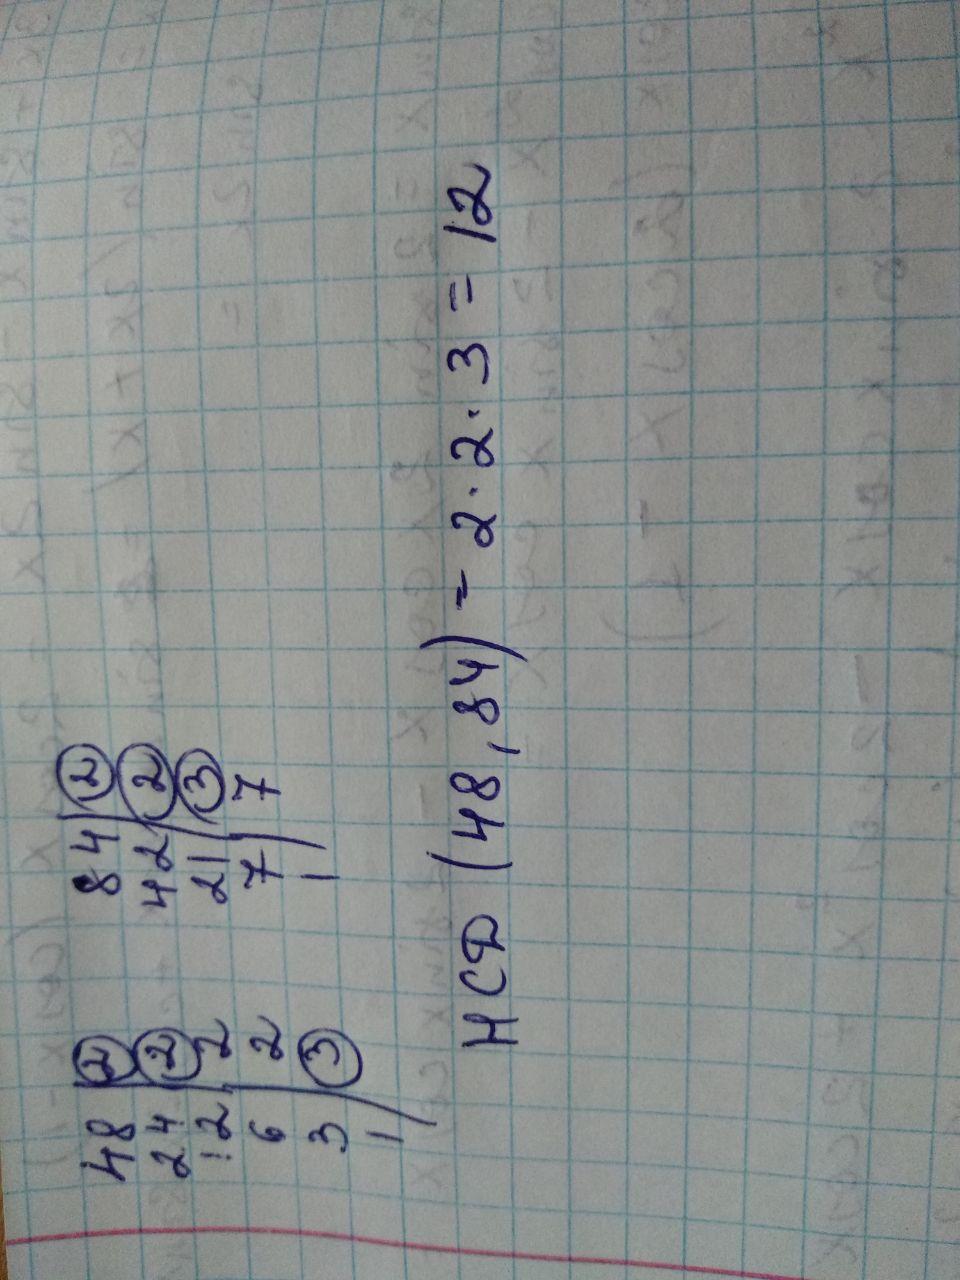 48 | 2
24 | 2
12 | 2
6 | 2
3 | 3
1
84 | 2
42 | 2
21 | 3
7 | 7
1
НСД (48, 84) = 2 · 2 · 3 = 12